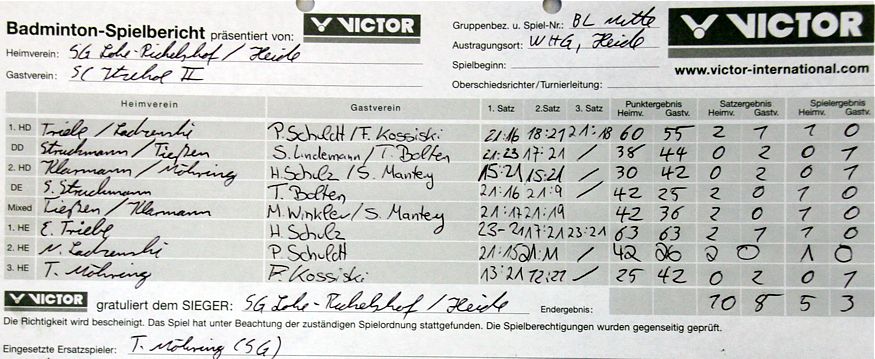 Badminton-Spielbericht präsentiert von: VICTOR
Heimverein: SG Lohe-Rickelshof / Heide
Gastverein: SC Itzehoe II
Gruppenbez. u. Spiel-Nr.: BL Mitte
Austragungsort: WHG, Heide
Spielbeginn:
Oberschiedsrichter/Turnierleitung:
VICTOR
www.victor-international.com
Heimverein Gastverein 1. Satz 2.Satz 3. Satz Punktergebnis Heimv. Gastv. Satzergebnis Heimv. Gastv. Spielergebnis Heimv. Gastv.
1. HD Triebe / Ladzenski P. Schuldt / F. Kossiski 21:16 18:21 21:18 60 55 2 1 1 0
DD Struchmann / Tießen S. Lindemann / T. Bolten 21:23 17:21 / 38 44 0 2 0 1
2. HD Klarmann / Möhring H. Schulz / S. Mantey 15:21 15:21 / 30 42 0 2 0 1
DE S. Struchmann T. Bolten 21:16 21:9 / 42 25 2 0 1 0
Mixed Tießen / Klarmann M. Winkler / S. Mantey 21:17 21:19 42 36 2 0 1 0
1. HE E. Triebe H. Schulz 23-21 17:21 23:21 63 63 2 1 1 0
2. HE N. Ladzenski P. Schuldt 21:15 21:11 / 42 26 2 0 1 0
3. HE T. Möhring F. Kossiski 13:21 12:21 / 25 42 0 2 0 1
VICTOR gratuliert dem SIEGER: SG Lohe-Rickelshof / Heide Endergebnis: 10 8 5 3
Die Richtigkeit wird bescheinigt. Das Spiel hat unter Beachtung der zuständigen Spielordnung stattgefunden. Die Spielberechtigungen wurden gegenseitig geprüft.
Eingesetzte Ersatzspieler: T. Möhring (SG)